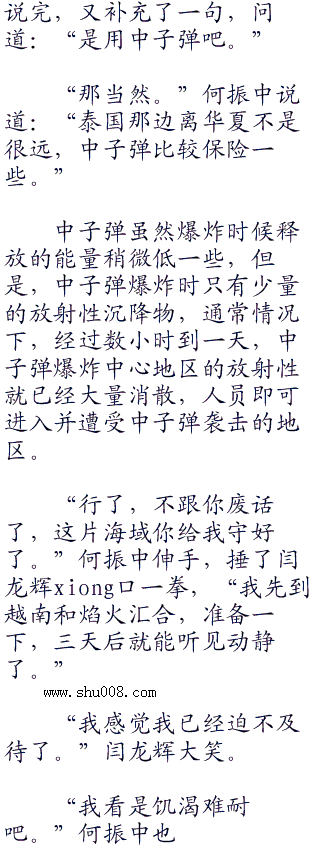 说完，又补充了一句，问
道：“是用中子弹吧。”
“那当然。”何振中说
道：“泰国那边离华夏不是
很远，中子弹比较保险一
些。”
中子弹虽然爆炸时候释
放的能量稍微低一些，但
是，中子弹爆炸时只有少量
的放射性沉降物，通常情况
下，经过数小时到一天，中
子弹爆炸中心地区的放射性
就已经大量消散，人员即可
进入并遭受中子弹袭击的地
区。
“行了，不跟你废话
了，这片海域你给我守好
了。”何振中伸手，捶了闫
龙辉xiong口一拳，“我先到
越南和焰火汇合，准备一
下，三天后就能听见动静
了。”
www.shu008.com
“我感觉我已经迫不及
待了。”闫龙辉大笑。
“我看是饥渴难耐
吧。”何振中也